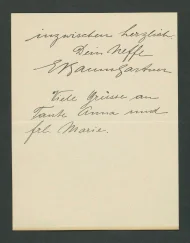 inzwischen herzlich
Dein Neffe
E Baumgartner
Viele Grüsse an
Tante Anna und
frl. Maria.